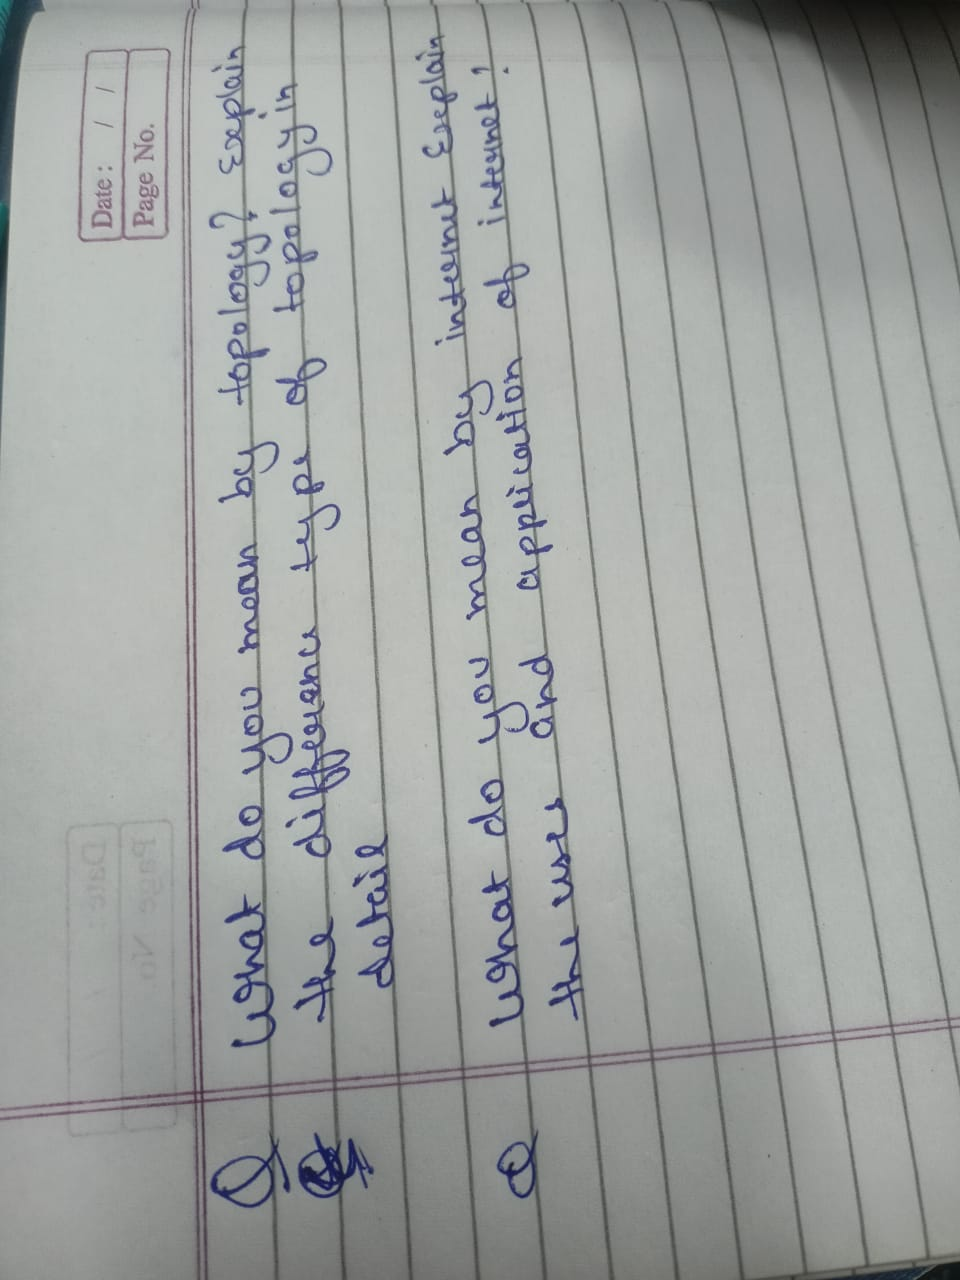 Date: / /
Page No.
Q What do you mean by topology? Explain
the differance type of topology in
detail
Q What do you mean by internet Explain
the uses and application of internet?